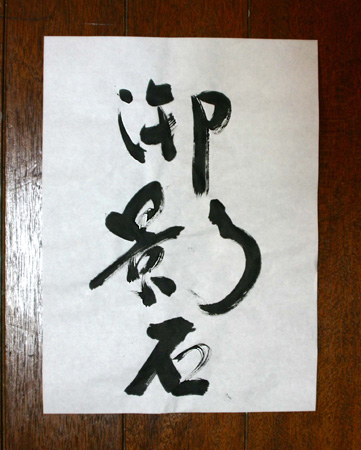 御影石